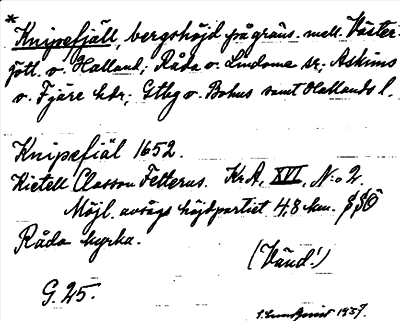 * Knipefjäll, bergshöjd på gräns. mell. Väster
götl. o. Halland; Råda o. Lindome sr; Askims
o. Fjäre hdr; Gtbg o. Bohus samt Hallands l.
Knipefiäl 1652.
Kietell Classon Felterus. KrA, XVI, N:o 2.
Möjl. avsågs höjdpartiet 4,8 km. SSÖ
Råda kyrka.
(Vänd!)
G. 25.
S. Lundqvist 1937.